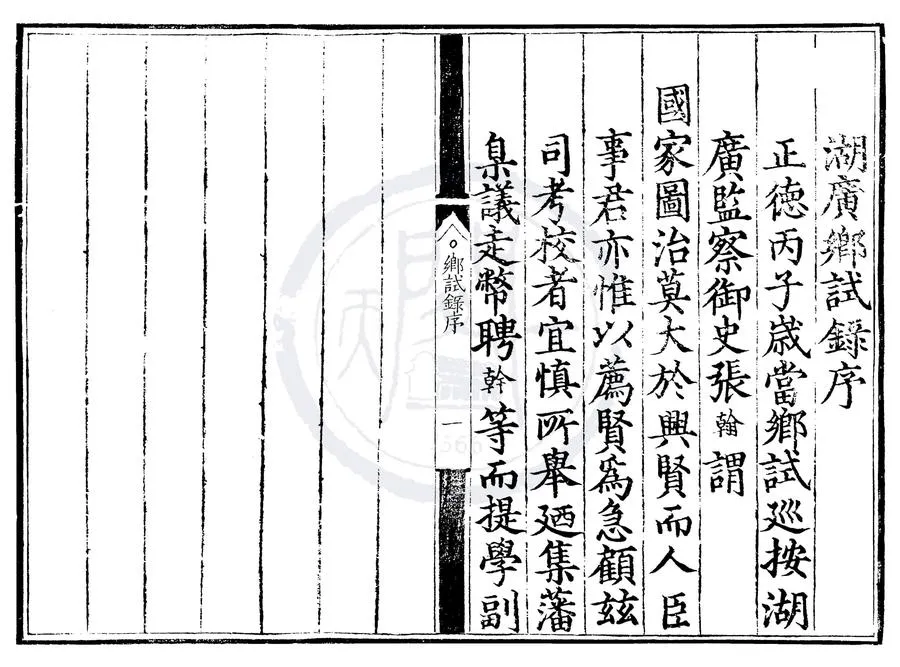 湖廣鄉試錄序
正德丙子歲當鄉試巡按湖
廣監察御史張翰謂
國家圖治莫大於興賢而人臣
事君亦惟以薦賢爲急顧玆
司考校者宜慎所舉廼集藩
臬議走幣聘幹等而提學副
鄉試錄序
一